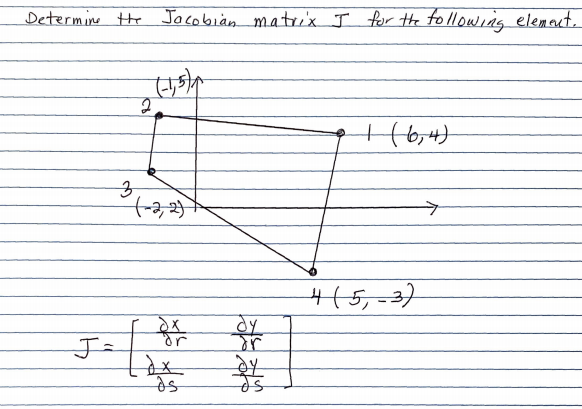 Determine the Jacobian matrix J for the following element.
(-1,5)
2
1 (6,4)
3
(-2,2)
4 (5,-3)
J = [ ∂x/∂r ∂y/∂r
∂x/∂s ∂y/∂s ]